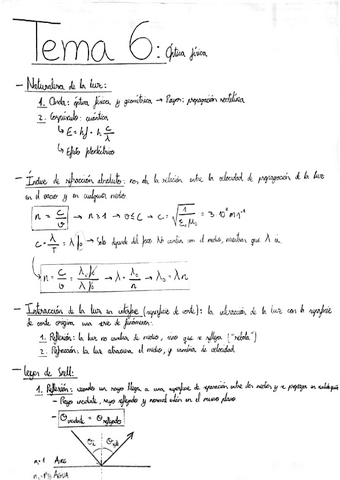 Tema 6: Óptica física
- Naturaleza de la luz:
1. Onda: óptica física y geométrica → Rayos: propagación rectilínea
2. Corpúsculo: cuántica
↳ E = hf = h c/λ
↳ Efecto fotoeléctrico
- Índice de refracción absoluto: nos da la relación entre la velocidad de propagación de la luz
en el vacío y en cualquier medio
n = c/v → n ≥ 1 → v ≤ c → c = √(1/ε₀μ₀) = 3·10⁸ m s⁻¹
c = λ/T = λ f → Solo depende del foco. No cambia con el medio, mientras que λ sí.
n = c/v = λ₀ f/λ f → λ = λ₀/n → λ₀ = λn
- Interacción de la luz en interfase (superficie de corte): la interacción de la luz con la superficie
de corte origina una serie de fenómenos:
1. Reflexión: la luz no cambia de medio, sino que se refleja ("rebota")
2. Refracción: la luz atraviesa el medio, y cambia de velocidad.
- Leyes de Snell:
1. Reflexión: cuando un rayo llega a una superficie de separación entre dos medios y se propaga en
- Rayo incidente, rayo reflejado y normal están en el mismo plano
- θincidente = θreflejado
θi θrefl
n=1 AIRE
AGUA